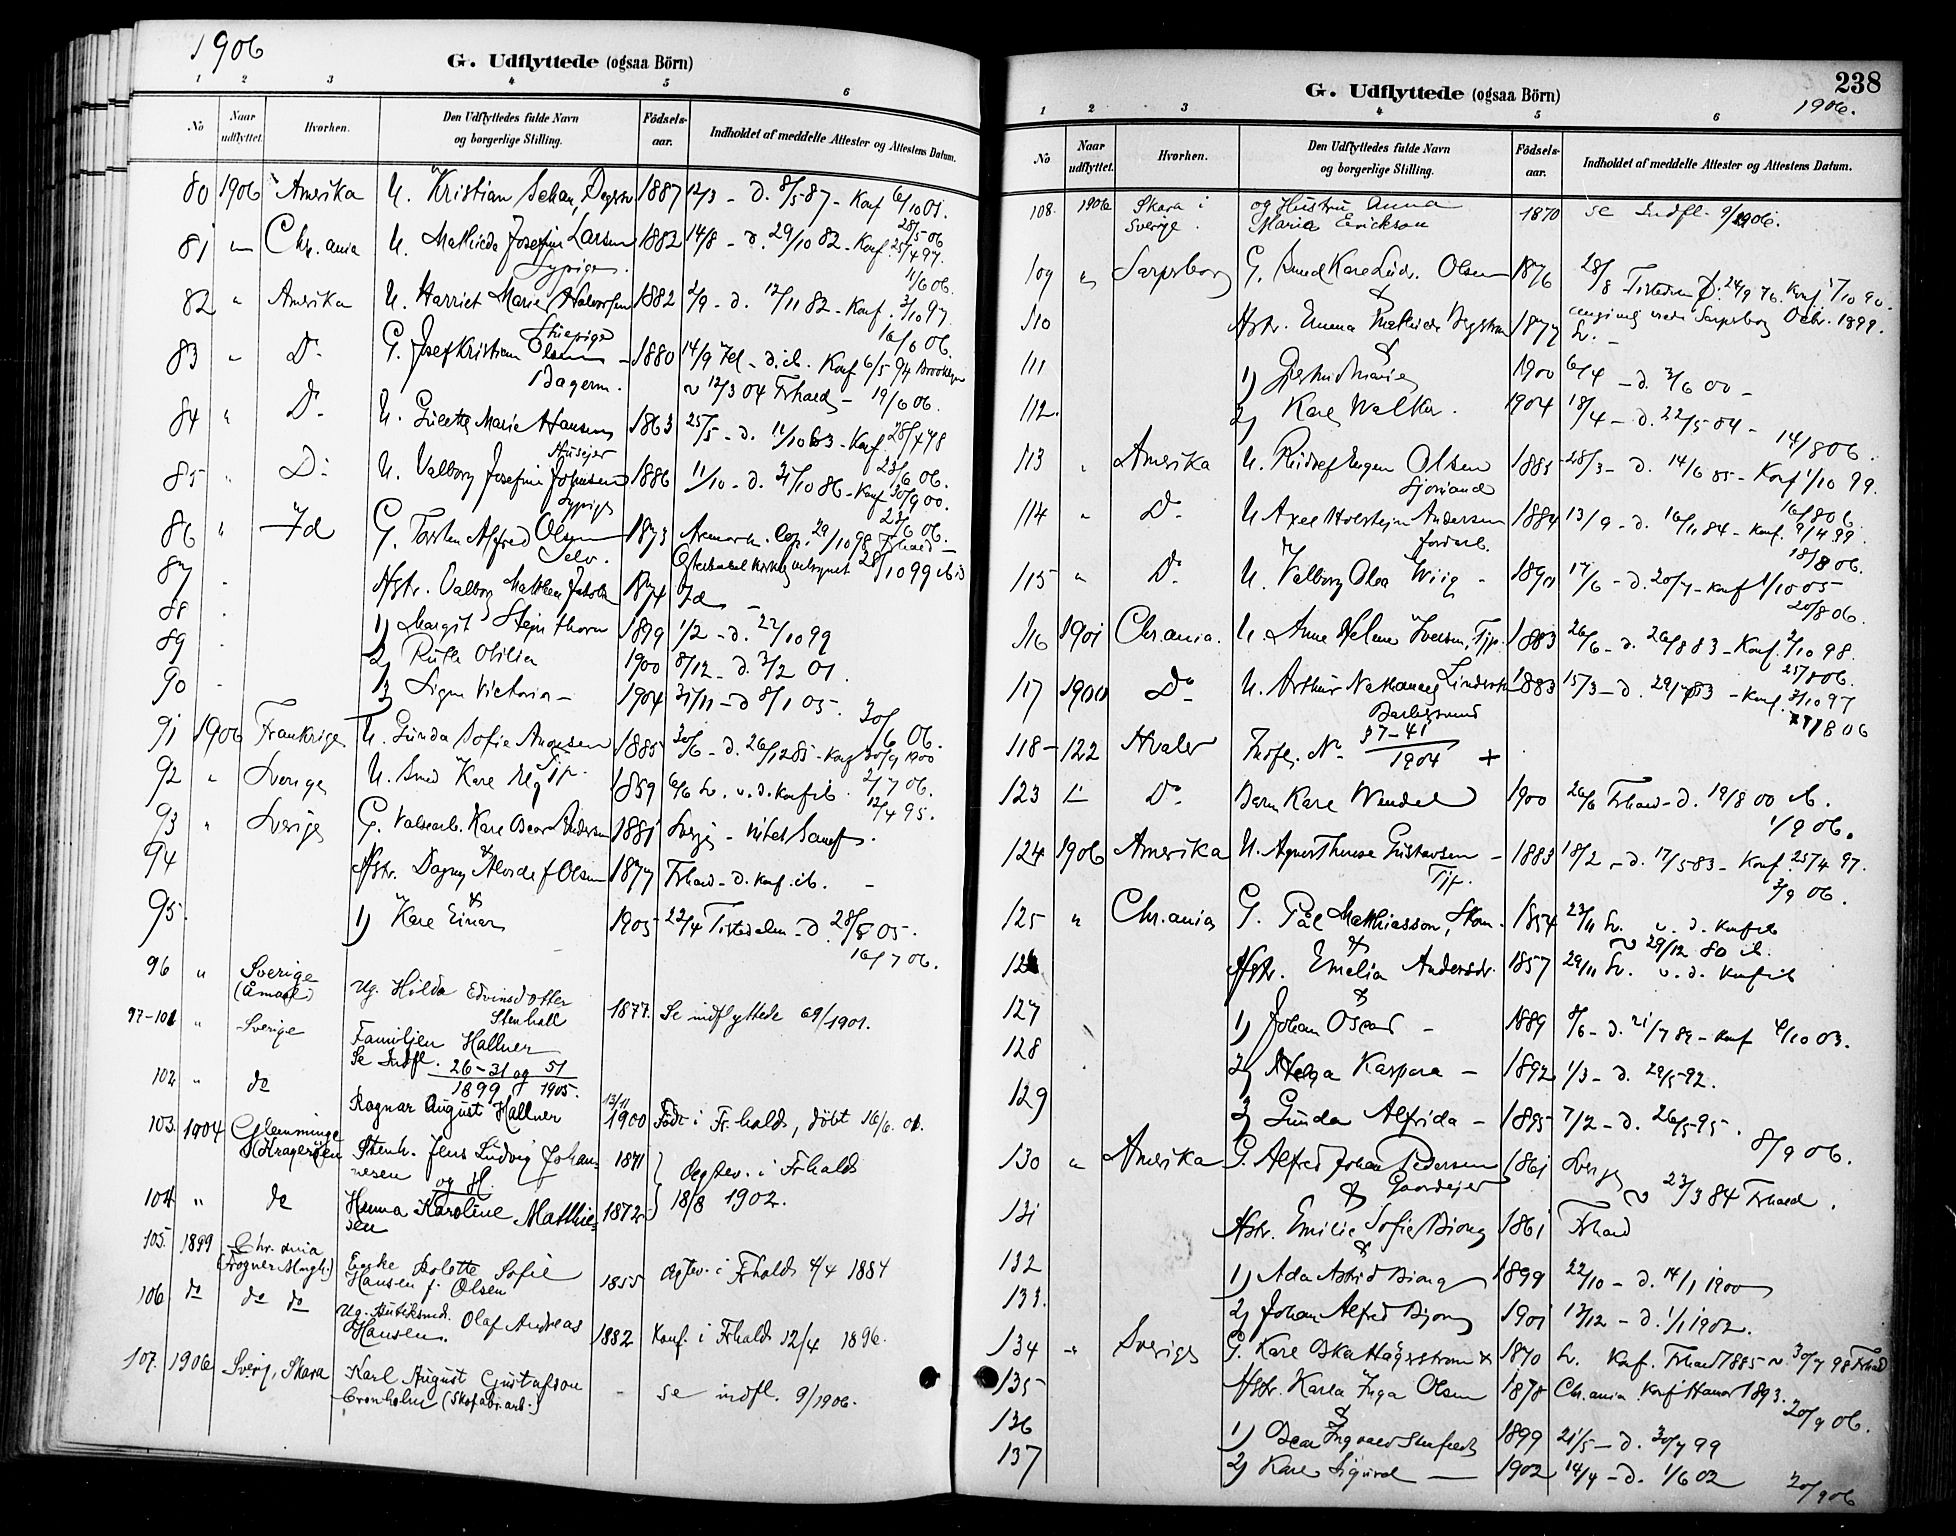 1906
G. Udflyttede (ogsaa Börn)
1 2 3 4 5 6
No
Naar udflyttet.
Hvorhen.
Den Udflyttedes fulde Navn og borgerlige Stilling.
Födsels-aar.
Indholdet af meddelte Attester og Attestens Datum.
80 1906 Amerika U. Kristian 1887 12/3 - d. 8/5 87 - Konf 6/10 01.
28/5 06
81 Chr.ania U. Mathilda Josefine Larsen 1882 14/8 - d. 29/10 82 - Konf. 25/4 97.
Sypige. 11/6 06.
82 " Amerika U. Harriet Marie Halvorsen 1882 2/9 - d. 12/11 82 - Konf. 3/10 97.
16/6 06.
83 " Do G. Josef Kristian Olsen 1880 14/9 - d. ib. Konf 6/5 94 Brooklyn
12/3 04 Frhald - 19/6 06.
84 " Do U. Marie Hansen 1863 25/5 - d. 11/10 63 - Konf 28/4 78
23/6 06.
85 " Do U. Valborg Josefine Johnsen 1886 11/10 - d. 31/10 86 - Konf 30/9 00.
Sypige 23/6 06.
86 " Id G. Torsten Alfred Olsen 1873 Aremark. Cop. 29/10 98 Frhald -
87 Hstr. Valborg 1874 Id -
88 1) Margit 1899 1/2 - d. 22/10 99
89 2) Ruth Otilia 1900 8/12 - d. 3/2 01.
90 3) Signe Victoria - 1904 31/11 - d 8/1 05.
30/6 06.
91 1906 Frankrige U. Gunda Sofie Andersen 1885 30/6 - d. 26/12 85 - Konf 30/9 1900
Tjp. 2/7 06.
92 " Sverige U. Smed Karl 1859 6/6 Sv. v. d. Konf ib.
12/4 95.
93 " Sverige G. Valsearb. Karl Oscar Andersen 1881 Sverige
94 Hstr. Dagny f. Olsen 1877 Frhald - d. Konf. ib. -
95 1) Kare Einar 1905 22/4 Tistedalen - d. 28/5 05.
16/7 06.
96 " Sverige (Åmål) Ug. Hilda Edvinsdotter Stenhall 1877. Se indflyttede 69/1901.
97-101 " Sverige Familjen Hallner
Se Indfl. 26-31 og 51
1899 1905.
102 " do Ragnar August Hallner 13/11 1900 Född i Fr.halds, döbt 16/6. 01.
103. 1904 Glemminge (Kragerøen Stenh. Jens Ludvig Johannesen 1871 Ægtev. i Frhalds
og H.
104 " do Hanna Karoline Matthiesen 1872 18/8 1902.
105. 1899 Chr.ania (Frogner Mngh.) Enke Lolotte Sofie Hansen f. Olsen 1855 Ægtev. i Frhalds 4/4 1884
106 do do do Ug. Butiksmd. Olaf Andreas Hansen. 1882 Konf. i Frhalds 12/4 1896.
107. 1906 Sverig, Skara Karl August Gustafson
Cronholm (Skofabr.arb.) - Se indfl. 9/1906.
238
G. Udflyttede (ogsaa Börn)
1906.
1 2 3 4 5 6
No
Naar udflyttet.
Hvorhen.
Den Udflyttedes fulde Navn og borgerlige Stilling.
Födsels-aar.
Indholdet af meddelte Attester og Attestens Datum.
108. 1906 Skara i Sverige. og Hustru Anna Maria Erickson 1870 se Indfl. 9/1906.
109 " Sarpsborg G. Smed Karl Ludv. Olsen 1876 28/8 Tistedalen d. 24/9 76. Konf. 5/10 90.
&
110 Hstr. Emma Mathilde Bergstrøm 1877 Sv. -
Sarpsborg Octbr. 1899.
111 1) Gjertrud Marie 1900 6/4 - d. 3/6 00 -
112. 2) Karl Walter. 1904 18/4 - d. 22/5 04 -
14/8 06.
113 " Amerika U. Eugen Olsen 1885 28/3 - d. 14/6 85 - Konf 1/10 99.
Sjømand 16/8 06.
114 " Do U Axel Holstein Andersen 1884 13/9 - d. 16/11 84 - Konf. 9/4 99.
18/8 06.
115 " Do U. Valborg Olea Wiig - 1890 14/6 - d. 20/7 - Konf 1/10 05
20/8 06.
116 1901 Chr.ania. U Anne Helene Iversen, Tjp. 1883 26/6 - d. 26/8 83 - Konf. 2/10 98.
25/8 06.
117 1900 Do U. Arthur Nathanael 1883 15/3 - d. 29/7 83 - Konf. 3/10 97
118 - 122 Hvaler No 37-41
1904
123 Do Barn Karl Wendel 1900 26/6 Frhald - d. 19/8 00 ib.
1/9 06.
124 1906 Amerika U. Agnes Therese Gustavsen - 1883 18/2 - d. 17/5 83 - Konf. 25/4 97.
Tjp. 3/9 06.
125 " Chr.ania G. Pål Matthiasson, Skom. 1854 23/11 Sv. v. d. Konf ib
29/12 80 ib.
126 Hstr. Emelia Andersdr. 1857 29/11 Sv. v. d. Konf ib
&
127 1) Johan Oscar - 1889 8/6 - d. 21/7 89 - Konf 4/10 03.
128 2) Helga Kaspara - 1892 1/3 - d. 29/5 92.
129 3) Gunda Alfrida - 1895 7/2 - d. 26/5 95.
8/9 06.
130 " Amerika G. Alfred Johan Pedersen 1861 Sverige 23/3 84 Frhald.
Gaardejer
&
131 Hstr. Emilie Sofie Bjong 1861 Frhald
&
132 1) Ada Astrid Bjong 1899 22/10 - d. 14/1 1900
133. 2) Johan Alfred Bjong 1901 13/12 - d. 1/1 1902.
134 " Sverige G. Karl Oskar Hägerstrøm & 1870 Sv. Konf. Frhald 1885 30/7 98 Frhald
135 Hstr. Karla Inga Olsen 1878 Chr.ania Konf Hamar 1893.
& 20/9 06.
136 1) Oscar Ingvald 1899 21/5 - d. 30/7 99
137 2) Karl Sigurd - 1902 14/4 - d. 1/6 02
20/9 06